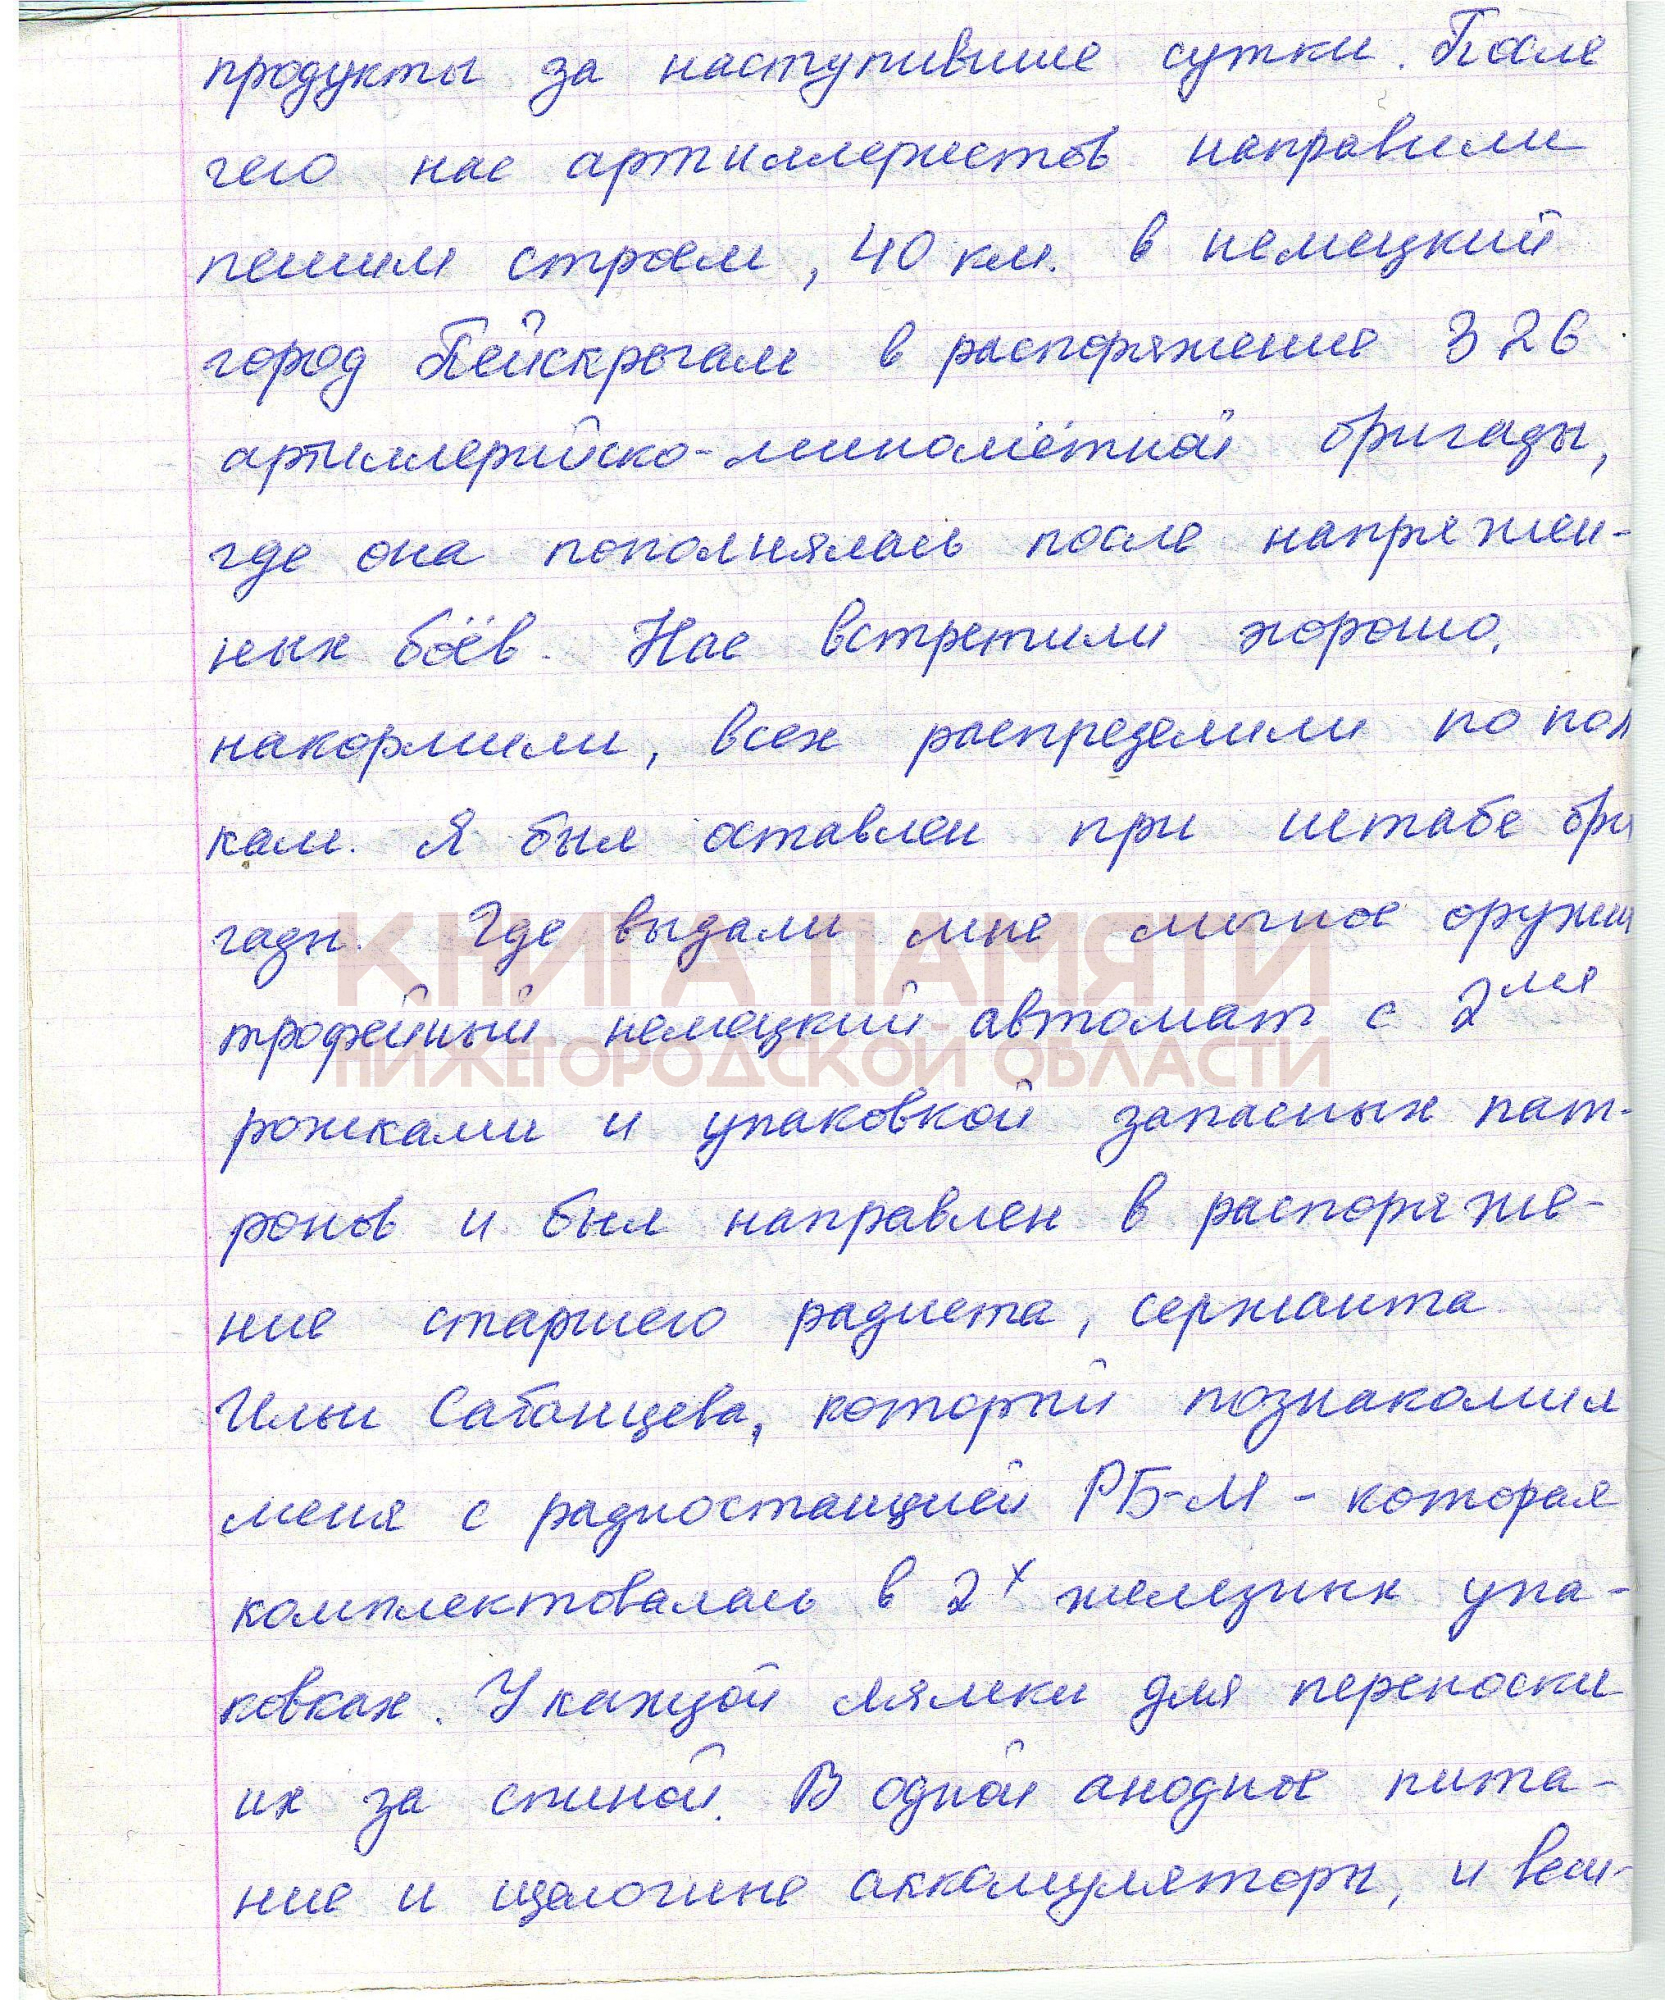 продукты за наступившие сутки. После
чего нас артиллеристов направили
пешим строем, 40 км. в немецкий
город Пейскрогам в распоряжение 326
артиллерийско-миномётной бригады,
где она пополнялась после напряжен-
ных боёв. Нас встретили хорошо,
накормили, всех распределили по пол
кам. Я был оставлен при штабе бри
гады. Где выдали мне личное оружи
КНИГА ПАМЯТИ
трофейный немецкий автомат с 2мя
НИЖЕГОРОДСКОЙ ОБЛАСТИ
рожками и упаковкой запасных пат-
ронов и был направлен в распоряже-
ние старшего радиста, сержанта
Ильи Сабанцева, который познакомил
меня с радиостанцией РБ-М - которая
комплектовалась в 2х железных упа-
ковках. У каждой лямки для переноски
их за спиной. В одной анодное пита-
ние и щелочные аккомуляторы, и вси-